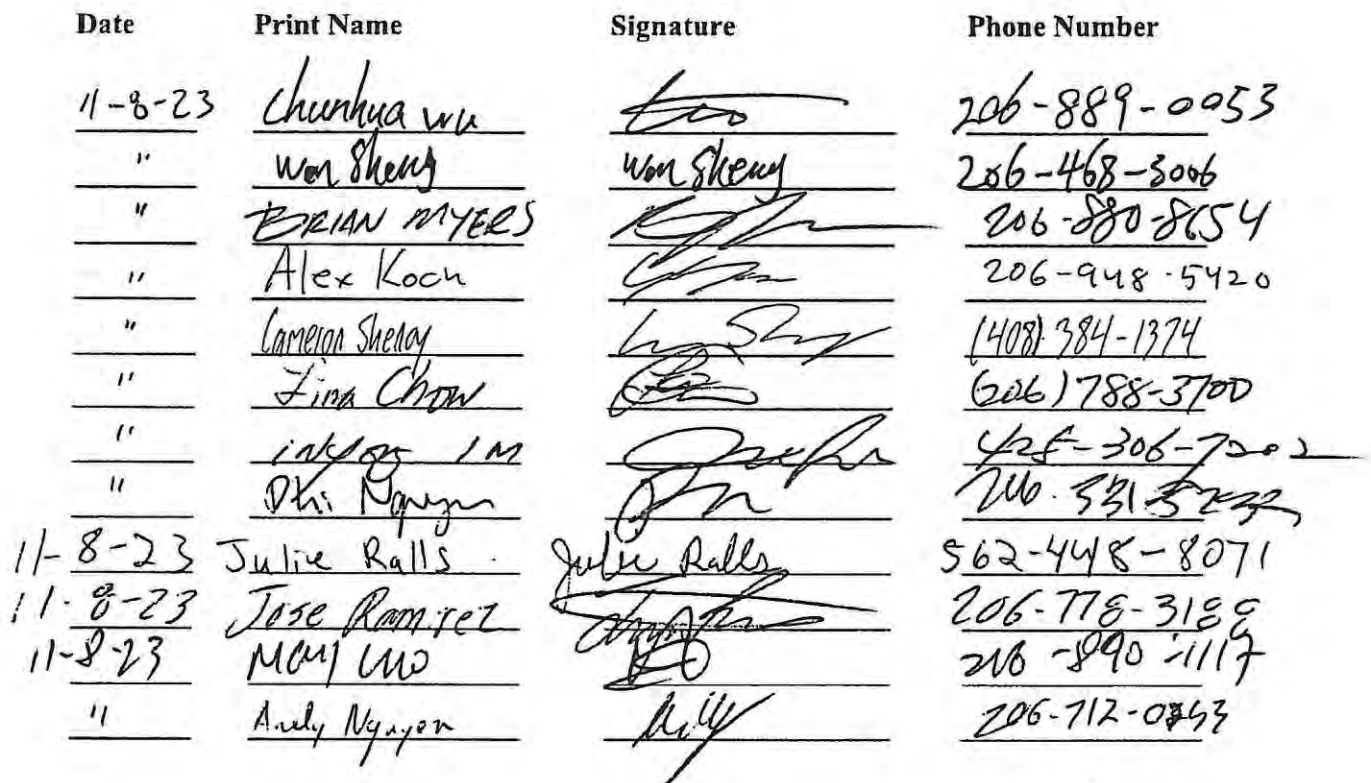 Date Print Name Signature Phone Number
11-8-23 Chunhua Wu 206-889-0053
" Wen Sheng Wen Sheng 206-468-3006
" BRIAN MYERS 206-880-8654
" Alex Koch 206-948-5420
" Cameron Shenoy (408) 384-1374
" Lina Chow (206) 788-3700
" 425-306-7202
" Phi Nguyen 206.331
11-8-23 Julie Ralls Julie Ralls 562-448-8071
11-8-23 Jose Ramirez 206-778-3188
11-8-23 206-890-1117
" Andy Nguyen 206-712-